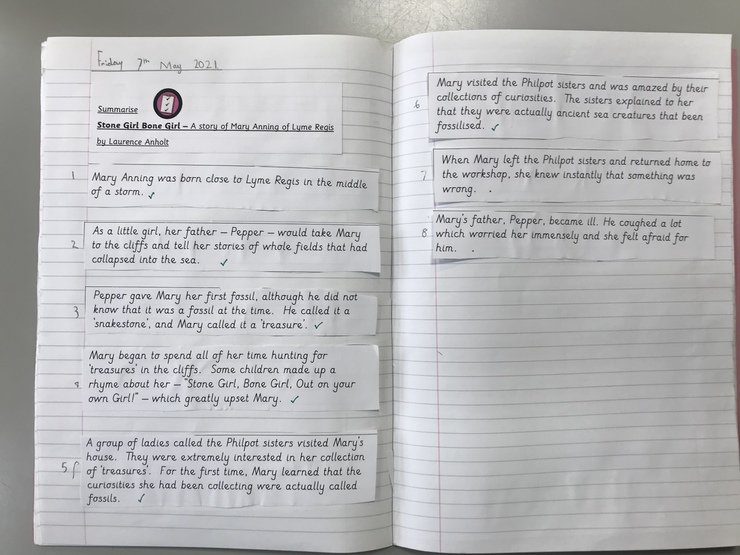 Friday 7th May 2021
Summarise
Stone Girl Bone Girl – A story of Mary Anning of Lyme Regis
by Laurence Anholt
1 Mary Anning was born close to Lyme Regis in the middle
of a storm.
2 As a little girl, her father – Pepper – would take Mary
to the cliffs and tell her stories of whole fields that had
collapsed into the sea.
3 Pepper gave Mary her first fossil, although he did not
know that it was a fossil at the time. He called it a
'snakestone', and Mary called it a 'treasure'.
Mary began to spend all of her time hunting for
'treasures' in the cliffs. Some children made up a
rhyme about her – "Stone Girl, Bone Girl, Out on your
own Girl!" – which greatly upset Mary.
A group of ladies called the Philpot sisters visited Mary's
house. They were extremely interested in her collection
5 of 'treasures'. For the first time, Mary learned that the
curiosities she had been collecting were actually called
fossils.
Mary visited the Philpot sisters and was amazed by their
6 collections of curiosities. The sisters explained to her
that they were actually ancient sea creatures that been
fossilised.
When Mary left the Philpot sisters and returned home to
7 the workshop, she knew instantly that something was
wrong.
Mary's father, Pepper, became ill. He coughed a lot
8 which worried her immensely and she felt afraid for
him.